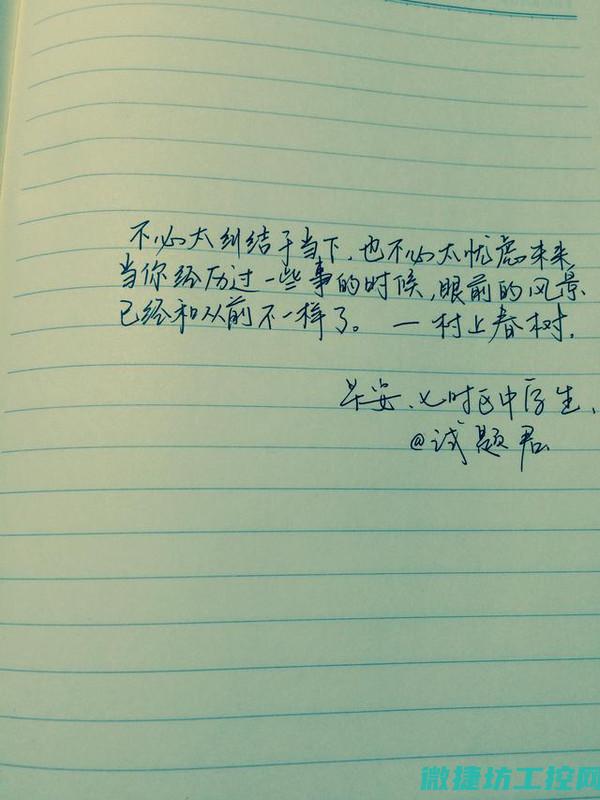 不必太纠结于当下，也不必太忧虑未来
当你经历过一些事的时候，眼前的风景
已经和从前不一样了。 —村上春树.
早安、七时区中学生、
@试题君
微捷坊工控网